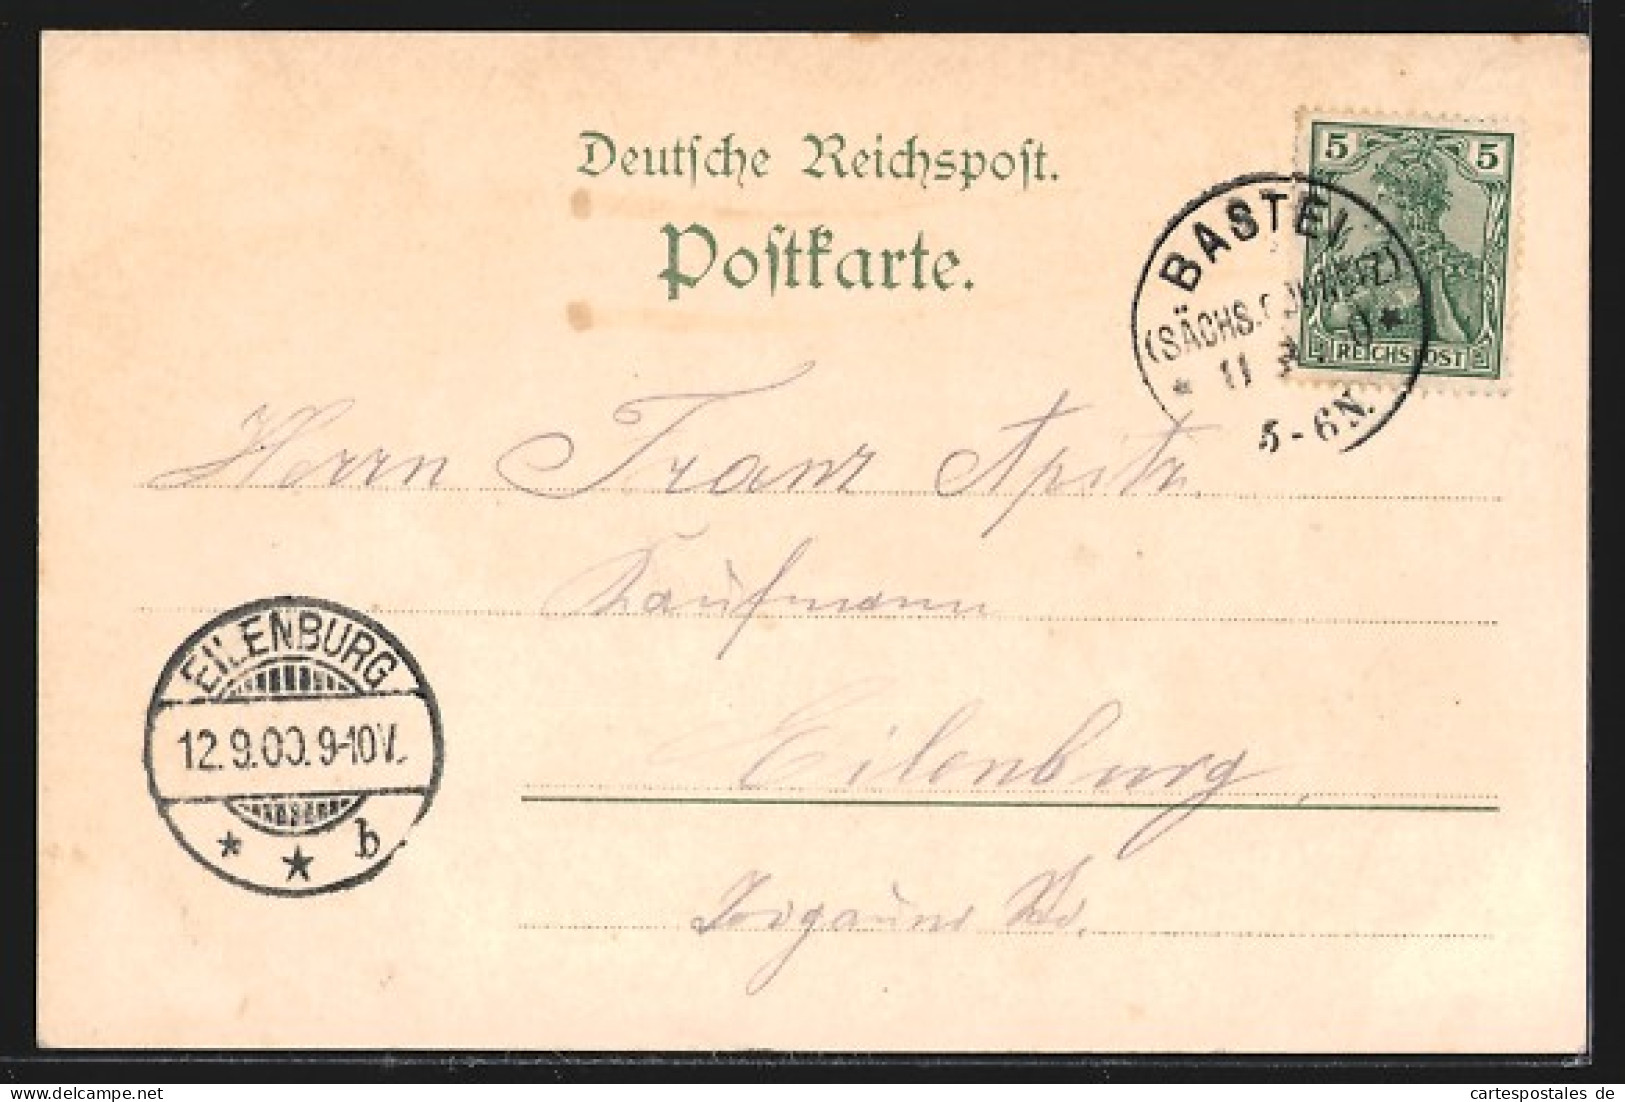 Deutsche Reichspost.
Postkarte.
5 5
REICHSPOST
BASTEI
(SÄCHS. SCHWEIZ)
* 11 9 *
5-6N.
Herrn Franz Apitz,
Kaufmann
Eilenburg,
EILENBURG
12.9.00.9-10V.
* * b
cartespostales de